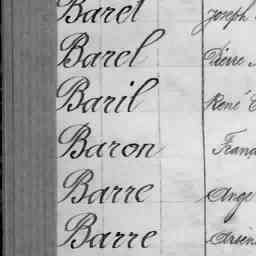 Baret Joseph
Barel Pierre
Baril René
Baron
Barre Ange
Barre